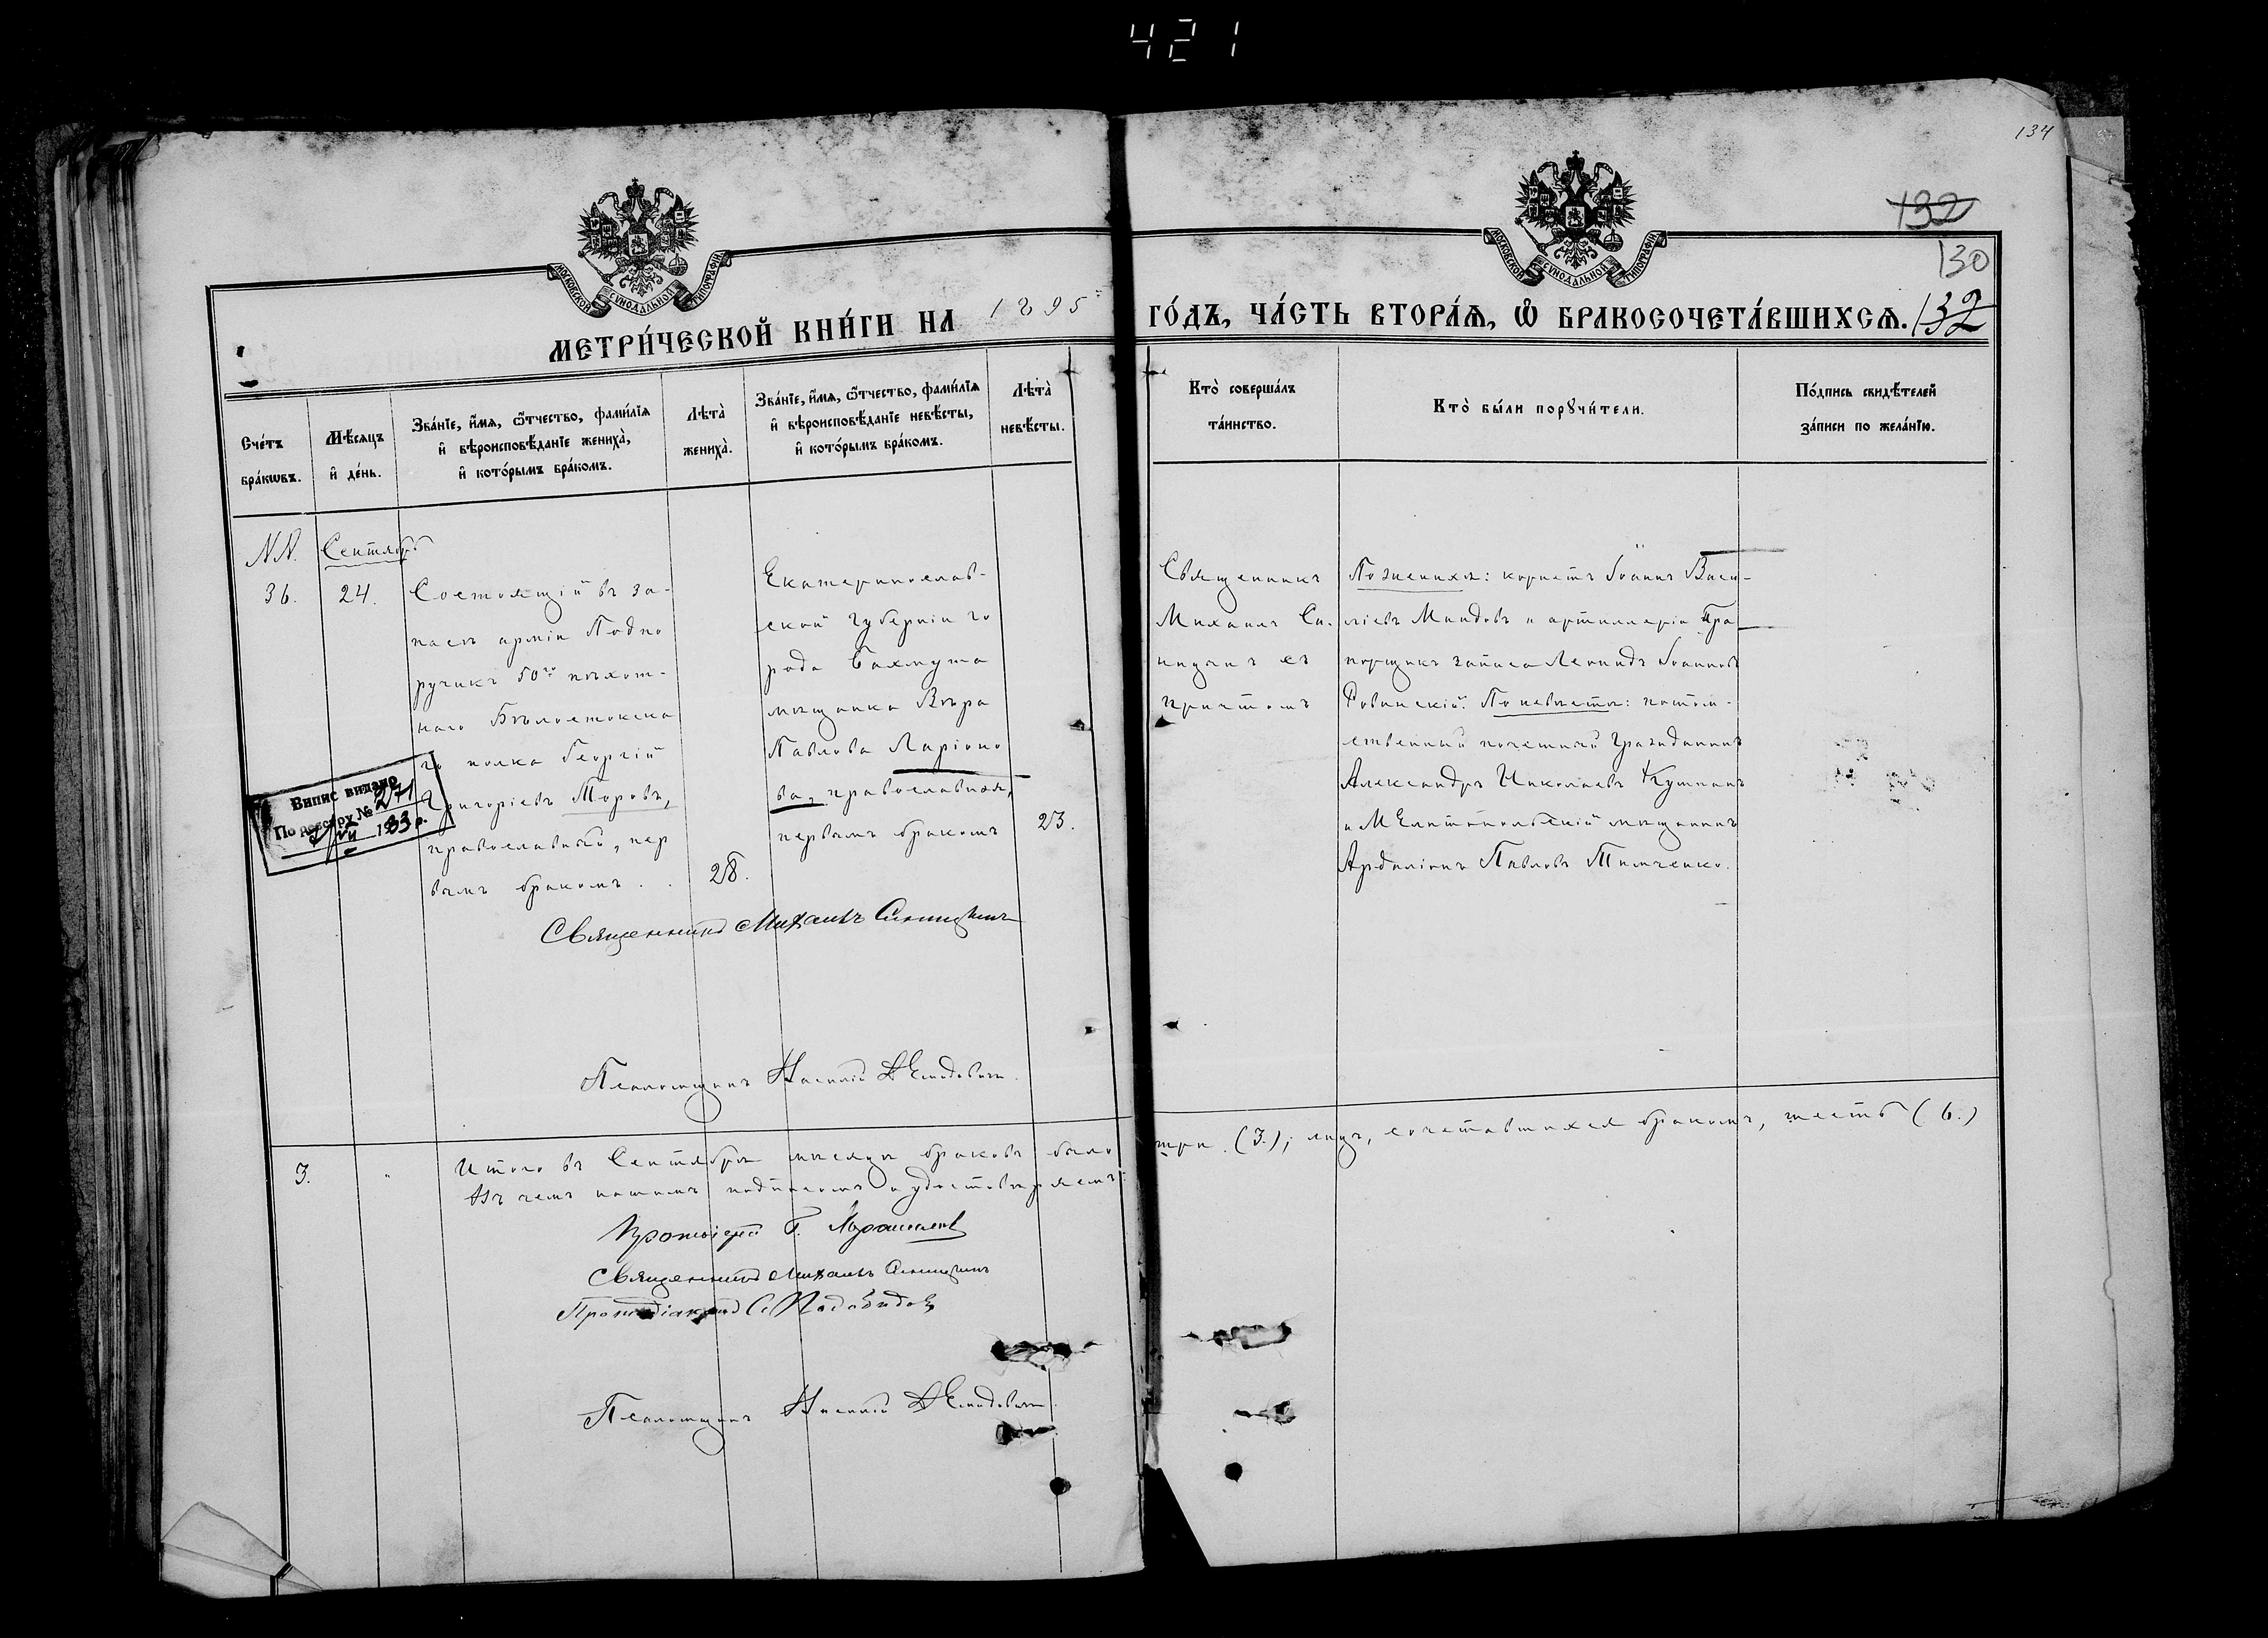 421
134
132
130
132
МОСКОВСКОЙ СѴНОДАЛЬНОЙ ТИПОГРАФІИ
МОСКОВСКОЙ СѴНОДАЛЬНОЙ ТИПОГРАФІИ
МЕТРИ́ЧЕСКОЙ КНИ́ГИ НА 1895
ГО́ДЪ, ЧА́СТЬ ВТОРА́Ѧ, Ѽ БРАКОСОЧЕТА́ВШИХСѦ.
Сче́тъ
бра́кѡвъ.
Мѣ́сѧцъ
и҆ де́нь.
Зва́нїе, и҆́мѧ, ѻ҆́тчество, фами́лїѧ
и҆ вѣроисповѣ́данїе жениха̀,
и҆ кото́рымъ бра́комъ.
Лѣта̀
жениха̀.
Зва́нїе, и҆́мѧ, ѻ҆́тчество, фами́лїѧ
и҆ вѣроисповѣ́данїе невѣ́сты,
и҆ кото́рымъ бра́комъ.
Лѣта̀
невѣ́сты.
Кто̀ соверша́лъ
та́инство.
Кто̀ бы́ли порꙋчи́тели.
По́дпись свидѣ́телей
за́писи по жела́нїю.
NN.
36.
Сентябрь
24.
Состоящій въ за-
пасѣ арміи Подпо
ручикъ 50го пѣхот-
наго Бѣлостокска
го полка Георгій
Григоріевъ Моровъ,
православный, пер
вымъ бракомъ . .
28.
Екатеринослав-
ской губерніи го
рода Бахмута
мѣщанка Вѣра
Павлова Ларіоно
ва, православная,
первымъ бракомъ
23.
Священникъ
Михаилъ Си-
ницынъ съ
причтомъ
По женихѣ: корнетъ Іоаннъ Васи-
ліевъ Миндовъ и артиллеріи Пра
порщикъ запаса Леонидъ Іоанновъ
Ровинскій. По невѣстѣ: потом-
ственный почетный гражданинъ
Александръ Николаевъ Кушнанъ
и Мелитопольскій мѣщанинъ
Ардаліонъ Павловъ Тимченко.
Випис видано
По реєстру № 271
193 р.
Священникъ Михаилъ Синицынъ
Псаломщикъ
3. " Итого въ Сентябрѣ мѣсяцѣ браковъ было три (3.); лицъ, сочетавшихся бракомъ, шесть (6.)
Въ чемъ нашимъ подписомъ и удостовѣряемъ:
Протоіерей Г.
Священникъ Михаилъ Синицынъ
Протодіаконъ
Псаломщикъ